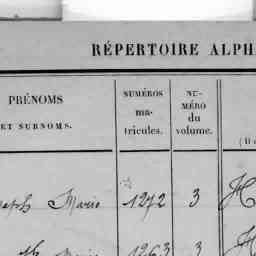 RÉPERTOIRE ALPH
PRÉNOMS
ET SURNOMS.
NUMÉROS
ma-
tricules.
NU-
MÉRO
du
volume.
Marie 1272 3 H
1263 3